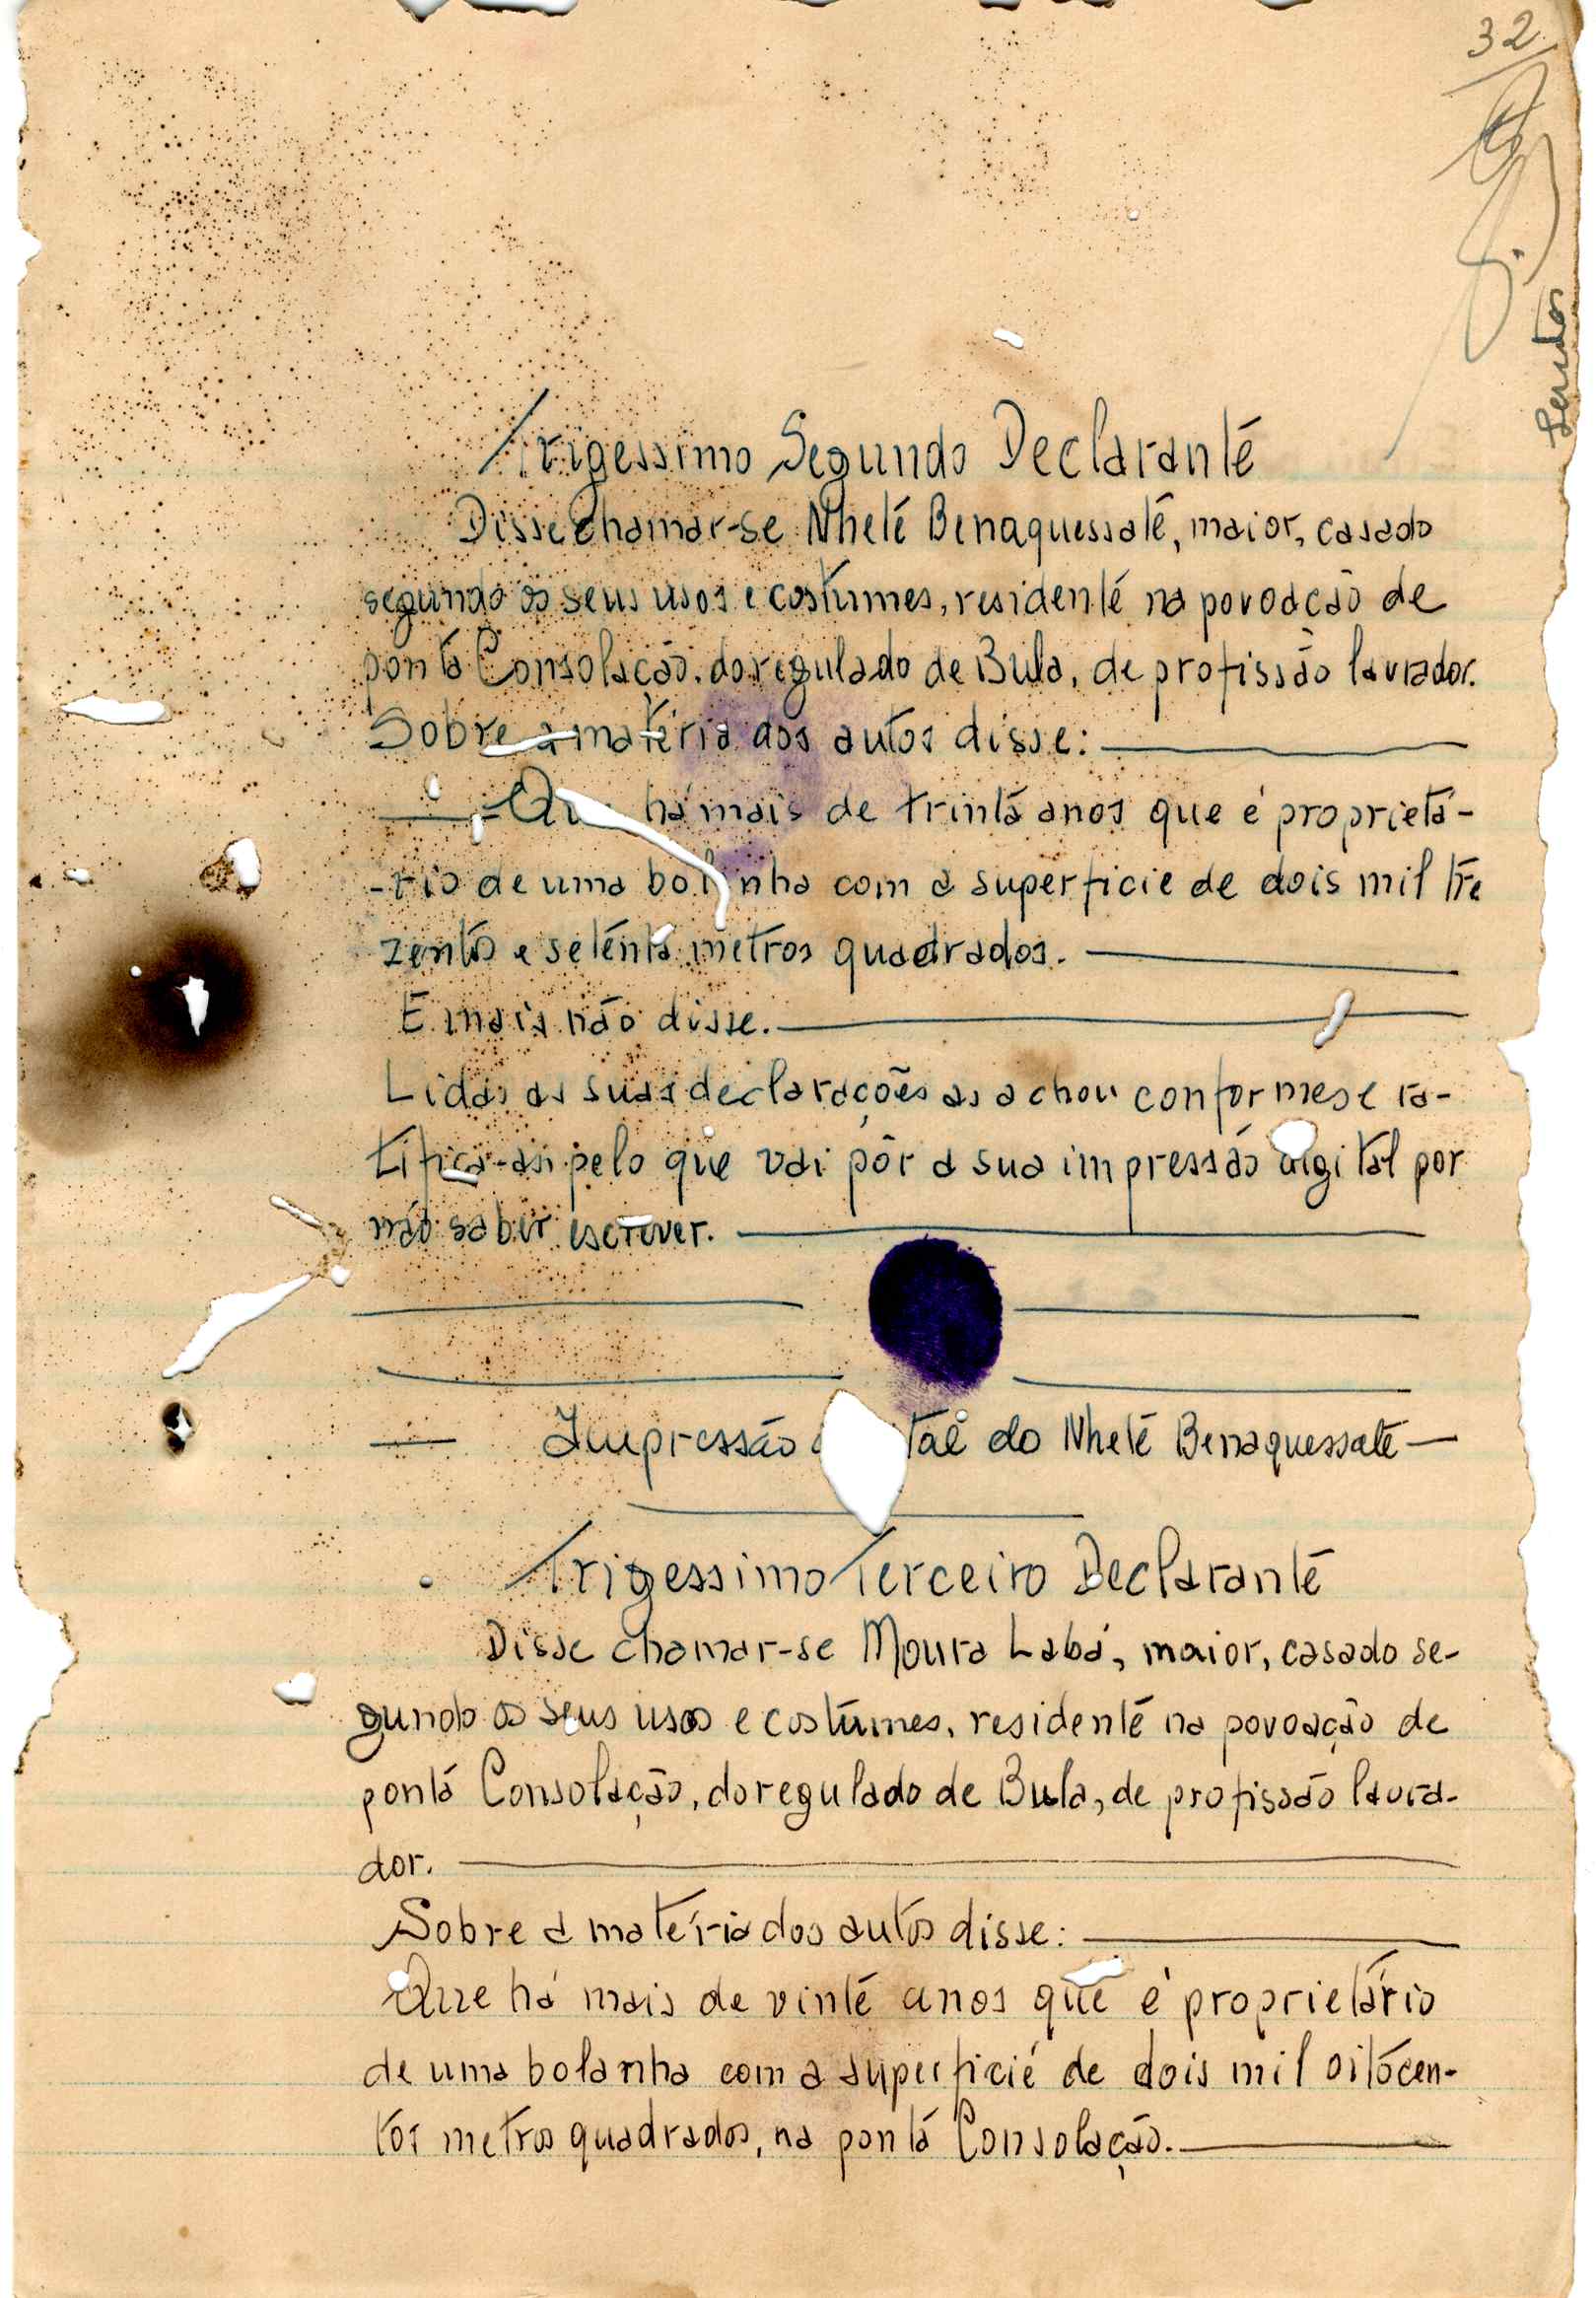 32
Trigessimo Segundo Declarante
Disse chamar-se Nheté Benaquessaté, maior, casado
segundo os seus usos e costumes, residente na povoação de
ponta Consolação, do regulado de Bula, de profissão lavrador.
Sobre a matéria dos autos disse:
- Que há mais de trinta anos que é proprietá-
-rio de uma bolanha com a superficie de dois mil tre
zentos e setenta metros quadrados.
E mais não disse.
Lidas as suas declarações as achou conformes e ra-
tifica-as pelo que vai pôr a sua impressão digital por
não saber escrever.
Impressão d tal do Nheté Benaquessaté
Trigessimo Terceiro Declarante
Disse chamar-se Moura Labá, maior, casado se-
gundo os seus usos e costumes, residente na povoação de
ponta Consolação, do regulado de Bula, de profissão lavra-
dor.
Sobre a matéria dos autos disse:
Que há mais de vinte anos que é proprietário
de uma bolanha com a superficie de dois mil oitocen-
tos metros quadrados, na ponta Consolação.